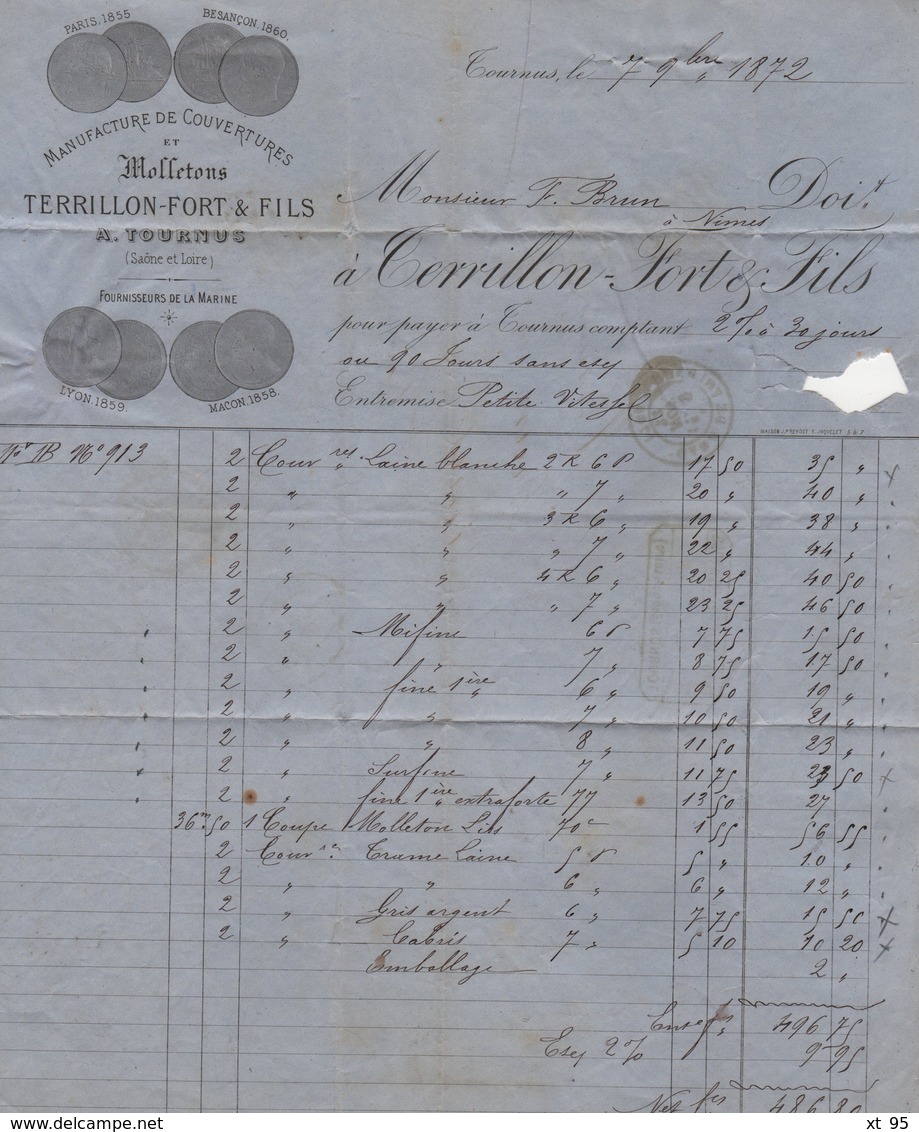 PARIS, 1855
BESANÇON, 1860.
MANUFACTURE DE COUVERTURES
ET
Molletons
TERRILLON-FORT & FILS
A. TOURNUS
(Saône et Loire)
FOURNISSEURS DE LA MARINE
LYON, 1859.
MACON, 1858.
Tournus, le 7 9bre 1872
Monsieur F. Brun Doit
à Nimes
à Terrillon-Fort & Fils
pour payer à Tournus comptant 2 % à 30 jours
ou 90 Jours sans esc
Entremise Petite Vitesse
MAISON J. PREVOST F. JNOUELET S & 7
B No 913 2 Couvres Laine blanche 2 R 6 P 17 50 35 "
2 " " " 7 " 20 " 40 "
2 " " 3 R 6 " 19 " 38 "
2 " " " 7 " 22 " 44 "
2 " " 4 R 6 " 20 25 40 50
2 " " " 7 " 23 25 46 50
2 " Mifine 6 P 7 75 15 50
2 " " 7 " 8 75 17 50
2 " fine 1ère 6 " 9 50 19 "
2 " " 7 " 10 50 21 "
2 " " 8 " 11 50 23 "
2 " Surfine 7 " 11 75 23 50
2 " fine 1ère extraforte 77 13 50 27
36m50 1 Coupe Molleton Lis 70c 1 55 56 55
2 Couvres Trame Laine 5 P 5 " 10 "
2 " " 6 " 6 " 12 "
2 " Gris argent 6 " 7 75 15 50
2 " Cabris 7 " 5 10 10 20
Emballage 2 "
496 75
Esc 2 % 9 95
Net fcs 486 80
xt 95